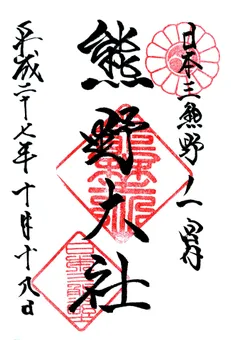 日本三熊野ノ一
熊野大社
平成二十七年十月十八日